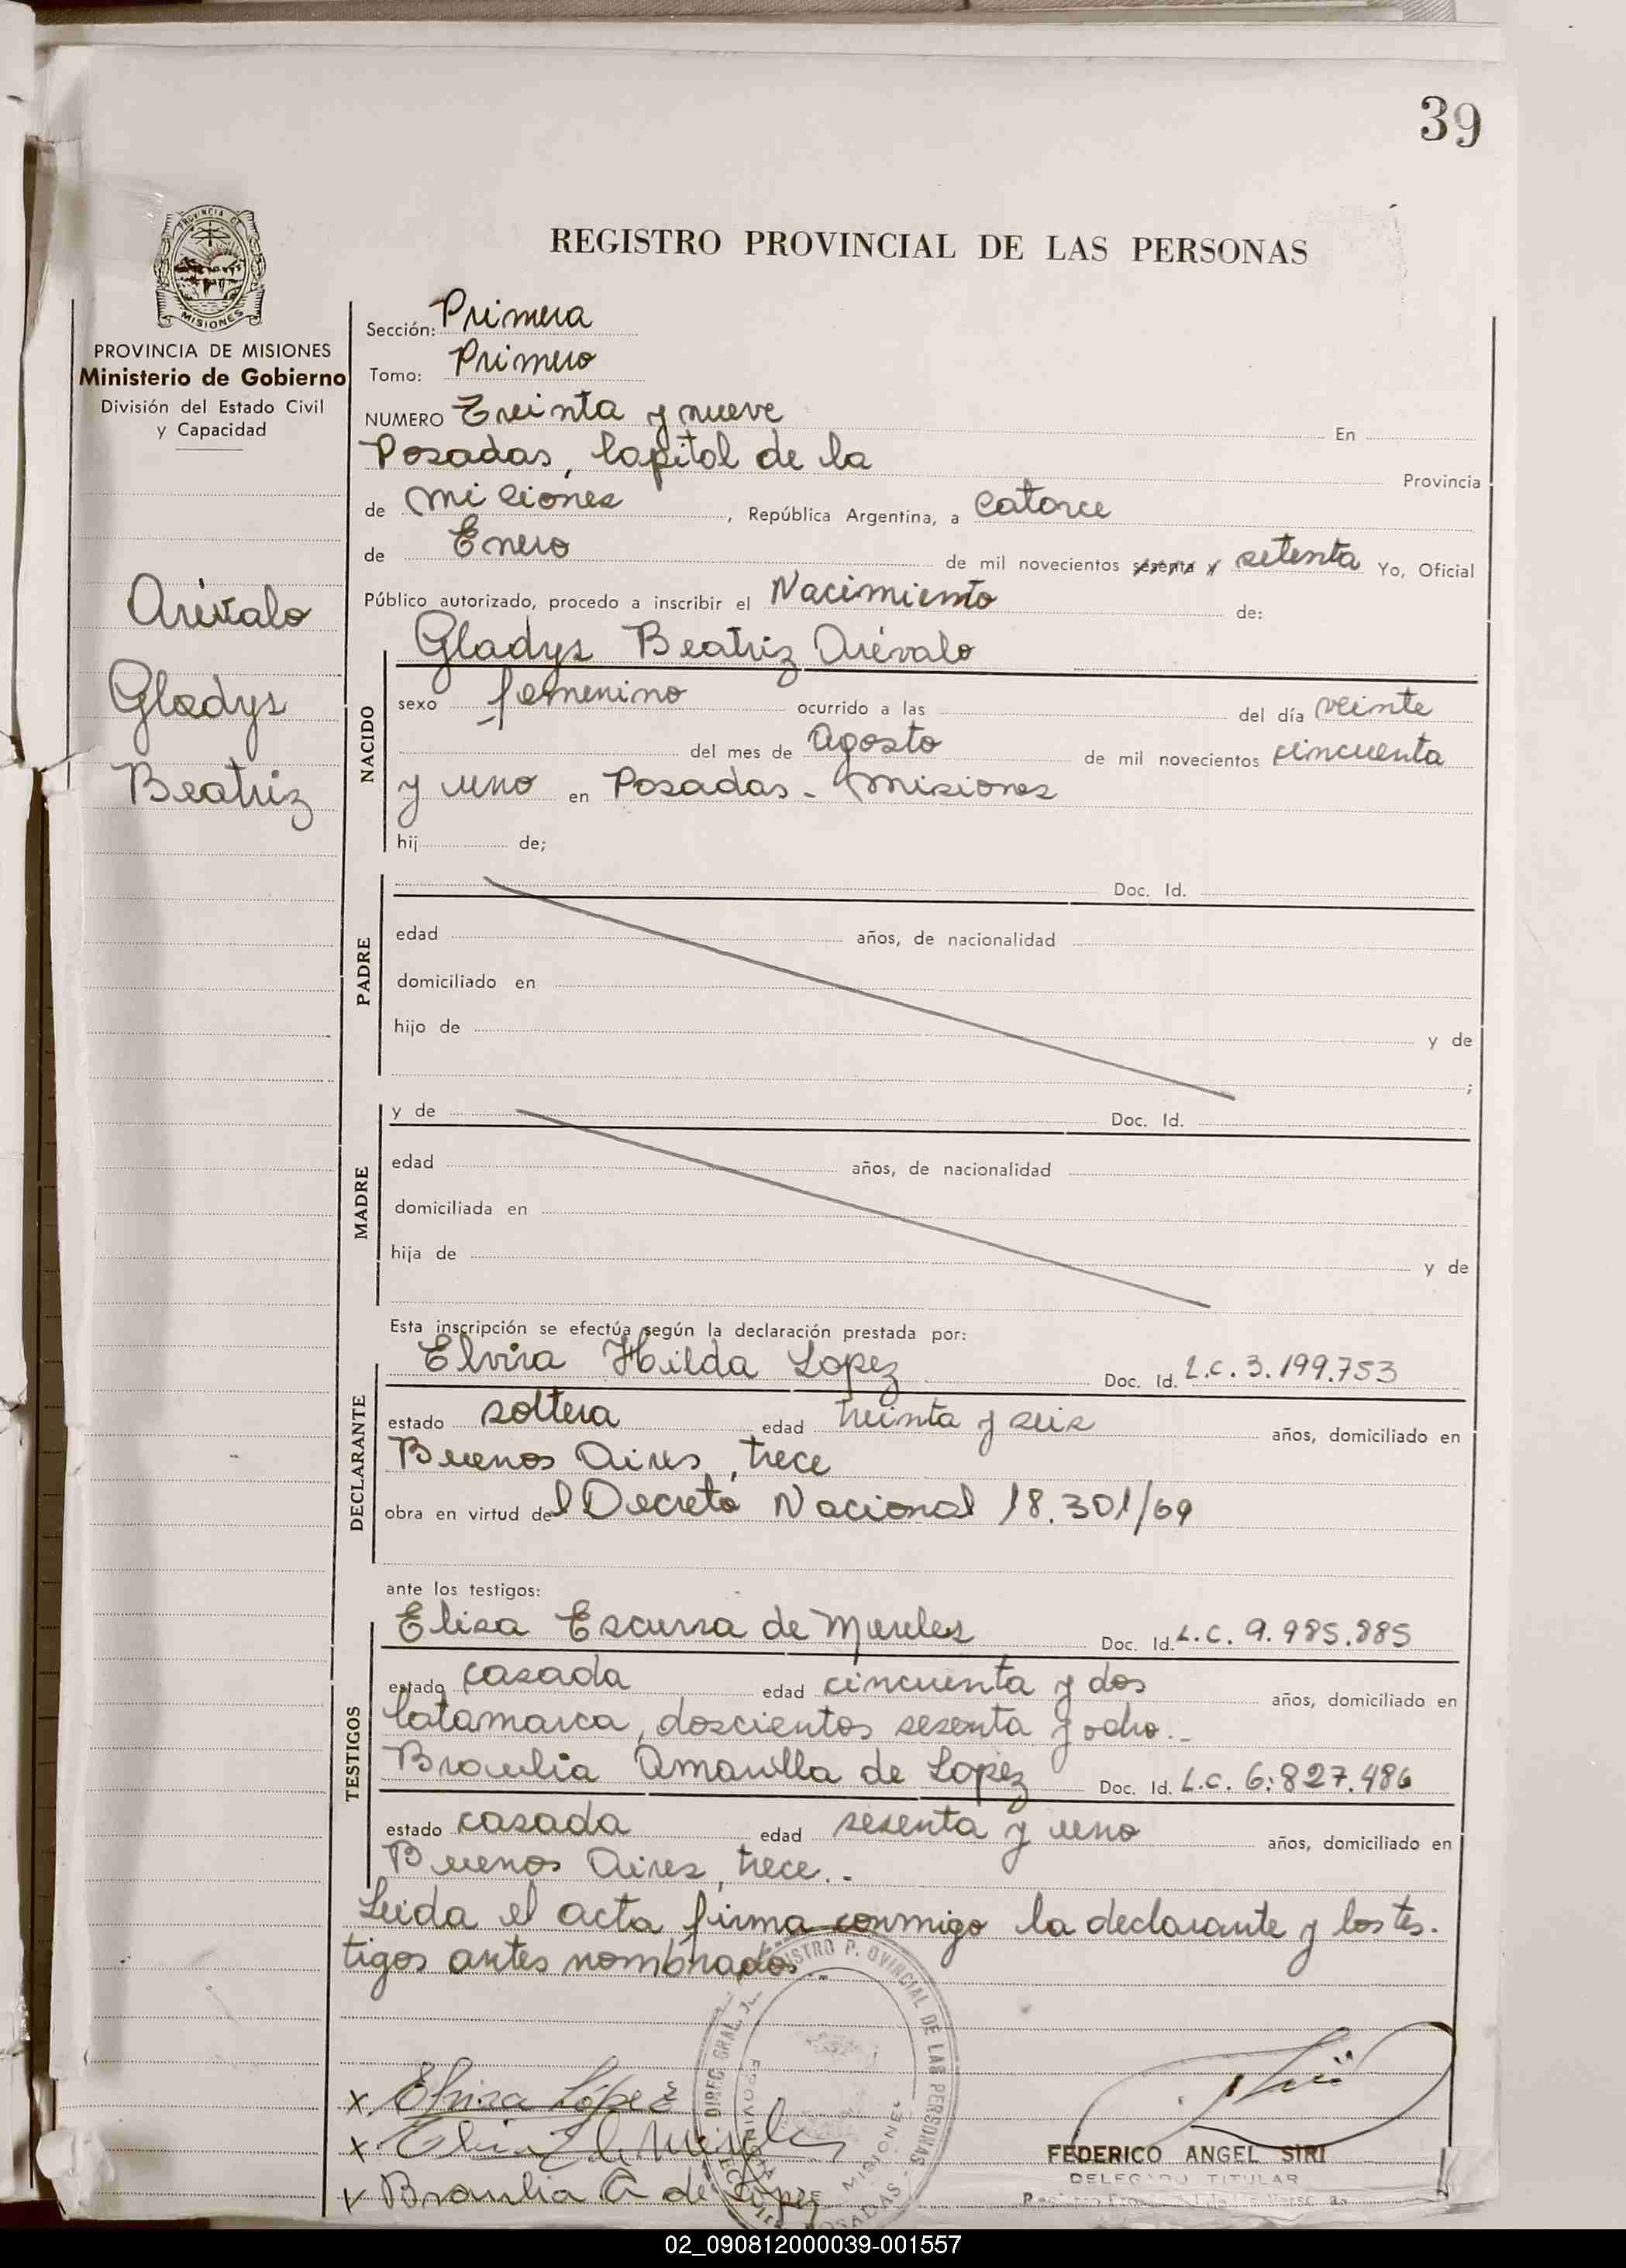 39
PROVINCIA DE
MISIONES
REGISTRO PROVINCIAL DE LAS PERSONAS
PROVINCIA DE MISIONES
Ministerio de Gobierno
División del Estado Civil
y Capacidad
Arévalo
Gladys
Beatriz
Sección: Primera
Tomo: Primero
NUMERO Treinta y nueve En
Posadas, Capital de la Provincia
de Misiones, República Argentina, a catorce
de Enero de mil novecientos sesenta y setenta Yo, Oficial
Público autorizado, procedo a inscribir el Nacimiento de:
NACIDO
Gladys Beatriz Arévalo
sexo femenino ocurrido a las del día veinte
del mes de Agosto de mil novecientos cincuenta
y uno en Posadas - Misiones
hij de;
PADRE
Doc. Id.
edad años, de nacionalidad
domiciliado en
hijo de y de
;
MADRE
y de Doc. Id.
edad años, de nacionalidad
domiciliada en
hija de y de
Esta inscripción se efectúa según la declaración prestada por:
DECLARANTE
Elvira Hilda Lopez Doc. Id. L.C. 3.199.753
estado soltera edad treinta y seis años, domiciliado en
Buenos Aires, trece
obra en virtud del Decreto Nacional 18.301/69
ante los testigos:
TESTIGOS
Elisa Escurra de Mereles Doc. Id. L.C. 9.985.885
estado casada edad cincuenta y dos años, domiciliado en
Catamarca, doscientos sesenta y ocho.-
Braulia Amarilla de Lopez Doc. Id. L.C. 6:827.486
estado casada edad sesenta y uno años, domiciliado en
Buenos Aires, trece.-
Leida el acta firma conmigo la declarante y los tes-
tigos antes nombrados.-
x Elvira López
x
x Braulia A de López
DIREC. GRAL. REGISTRO PROVINCIAL DE LAS PERSONAS
MISIONES
POSADAS
FEDERICO ANGEL SIRI
DELEGADO TITULAR
02_090812000039-001557